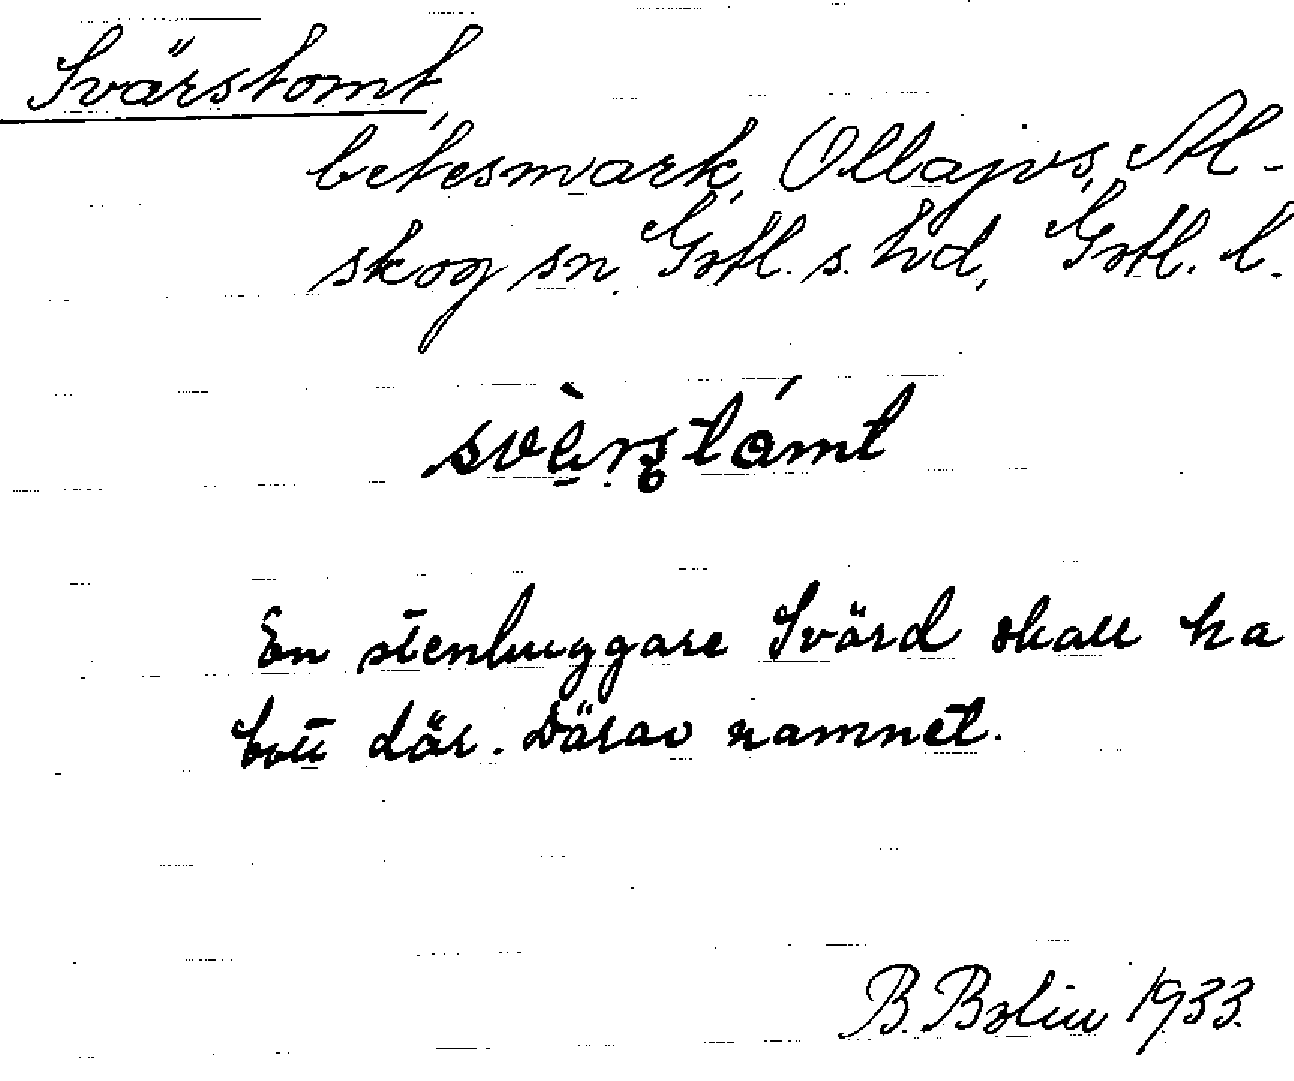 Svärstomt,
betesmark, Ollajvs, Al-
skog sn. Gotl. s. hd, Gotl. l.
svèrstámt
En stenhuggare Svärd skall ha
bott där. Därav namnet.
B. Bolin 1933.